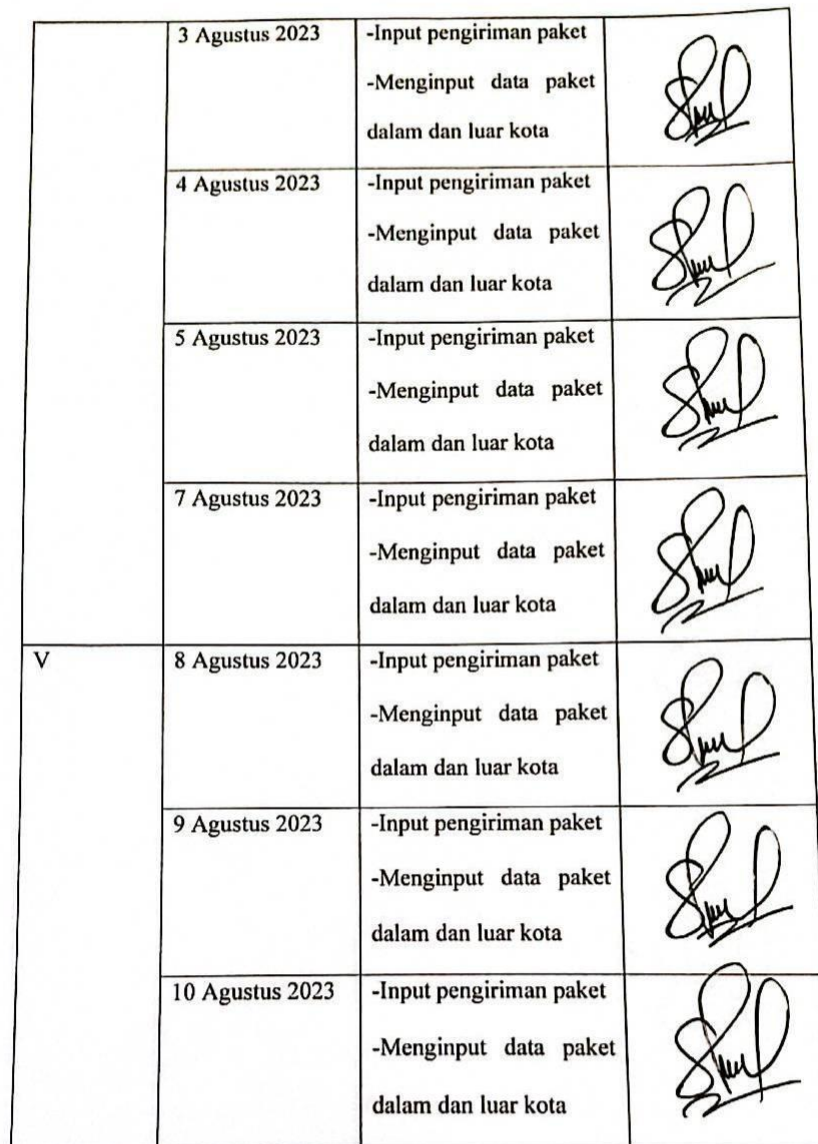 3 Agustus 2023
-Input pengiriman paket
-Menginput data paket
dalam dan luar kota
4 Agustus 2023
-Input pengiriman paket
-Menginput data paket
dalam dan luar kota
5 Agustus 2023
-Input pengiriman paket
-Menginput data paket
dalam dan luar kota
7 Agustus 2023
-Input pengiriman paket
-Menginput data paket
dalam dan luar kota
V
8 Agustus 2023
-Input pengiriman paket
-Menginput data paket
dalam dan luar kota
9 Agustus 2023
-Input pengiriman paket
-Menginput data paket
dalam dan luar kota
10 Agustus 2023
-Input pengiriman paket
-Menginput data paket
dalam dan luar kota